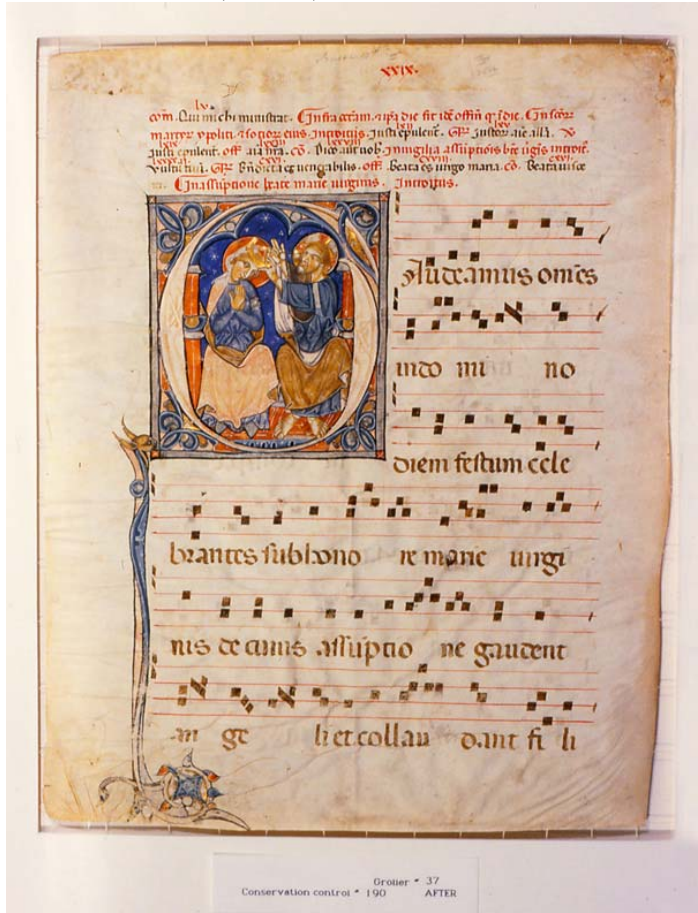 xxix.
lv
com. Qui michi ministrat. Infra octam.
martyr ypoliti sociorum eius Introitus. Iusti epulent. Gr. Iustor. aie alla. V
Iusti epulent. off. aia nra. co. Dico aut uob. In uigilia assuptiois bte uginis introit.
uultu tuu. Gr. Bndicta es uenerabilis. off. Beata es uirgo maria. co. Beata uisce
ra. In assuptione beate marie uirginis. Introitus.
Gaudeamus omes
indo mi no
diem festum cele
brantes sub hono re marie uirgi
nis de cuius assuptio ne gaudent
an ge li et collau dant fi li
Grolier # 37
Conservation control # 190 AFTER